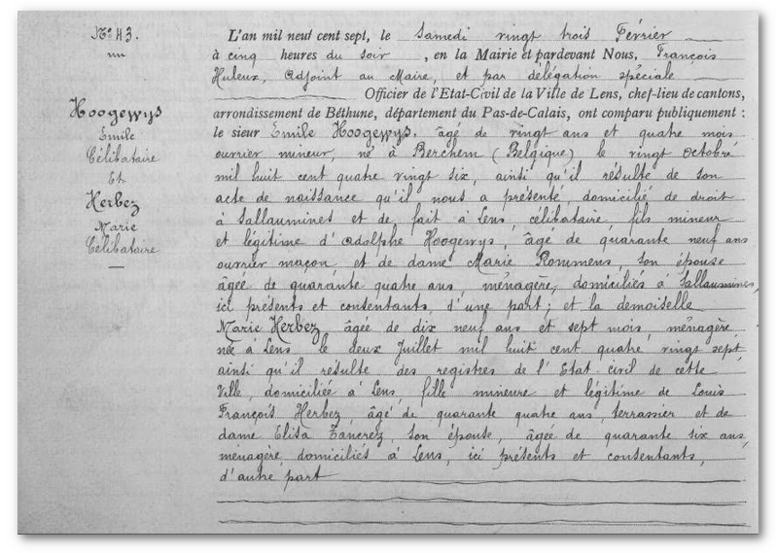 N° 43.
Hoogewys
Emile
Célibataire
Et
Herbez
Marie
Célibataire
L'an mil neuf cent sept, le Samedi vingt trois Février
à cinq heures du soir, en la Mairie et pardevant Nous, François
Huleux, adjoint au Maire, et par délégation spéciale
Officier de l'Etat-Civil de la Ville de Lens, chef-lieu de cantons,
arrondissement de Béthune, département du Pas-de-Calais, ont comparu publiquement :
le sieur Emile Hoogewys, âgé de vingt ans et quatre mois
ouvrier mineur, né à Berchem (Belgique) le vingt octobre
mil huit cent quatre vingt six, ainsi qu'il résulte de son
acte de naissance qu'il nous a présenté, domicilié de droit
à Sallaumines et de fait à Lens, célibataire, fils mineur
et légitime d'Adolphe Hoogewys, âgé de quarante neuf ans
ouvrier maçon, et de dame Marie Rommens, son épouse
âgée de quarante quatre ans, ménagère, domiciliés à Sallaumines,
ici présents et consentants, d'une part; et la demoiselle
Marie Herbez âgée de dix neuf ans et sept mois, ménagère
née à Lens le deux Juillet mil huit cent quatre vingt sept,
ainsi qu'il résulte des registres de l'Etat civil de cette
Ville, domiciliée à Lens, fille mineure et légitime de Louis
François Herbez, âgé de quarante quatre ans, terrassier et de
dame Elisa Tancrez, son épouse, âgée de quarante six ans,
ménagère domiciliés à Lens, ici présents et consentants,
d'autre part